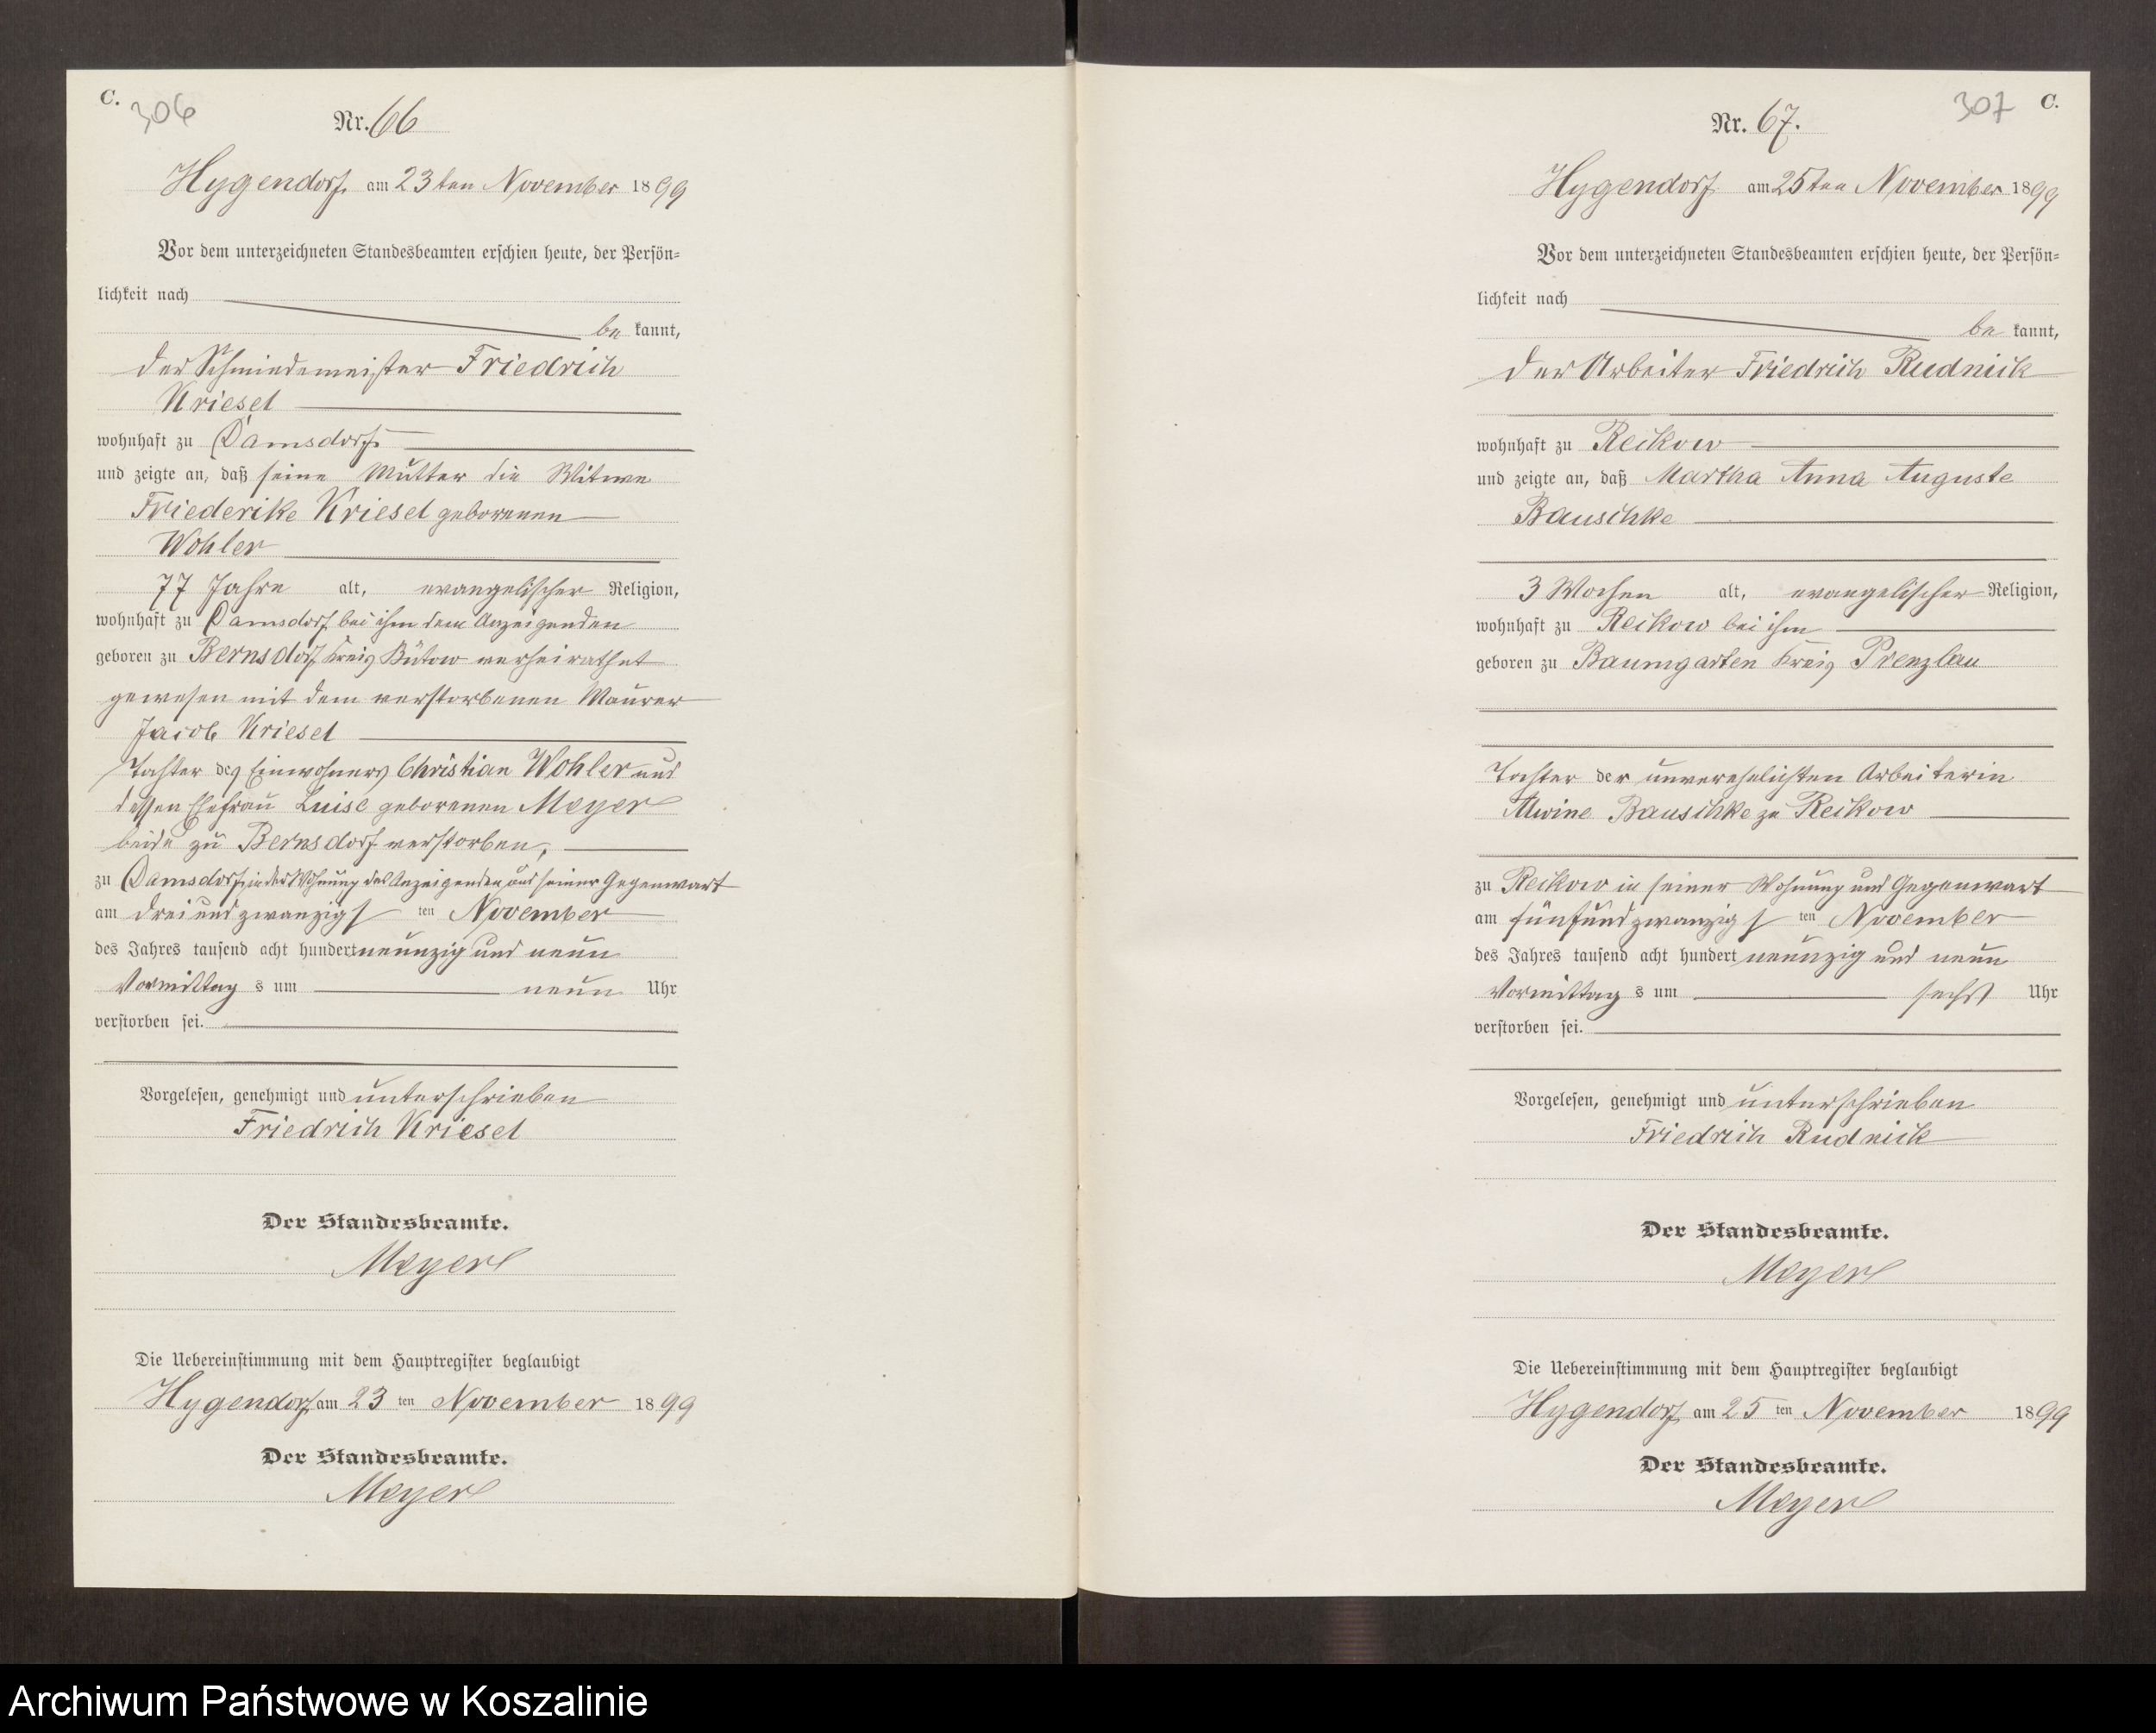 C.
306
Nr. 66
Hygendorf am 23ten November 1899
Vor dem unterzeichneten Standesbeamten erschien heute, der Persön=
lichkeit nach
be kannt,
der Schmiedemeister Friedrich
Kriesel
wohnhaft zu Damsdorf
und zeigte an, daß seine Mutter die Witwe
Friederike Kriesel geborenen
Wohler
77 Jahre alt, evangelischer Religion,
wohnhaft zu Damsdorf bei ihm dem Anzeigenden
geboren zu Bernsdorf Kreis Bütow verheirathet
gewesen mit dem verstorbenen Maurer
Jacob Kriesel
Tochter des Einwohners Christian Wohler und
dessen Ehefrau Luise geborenen Meyer
beide zu Bernsdorf verstorben,
zu Damsdorf, in der Wohnung des Anzeigenden und seiner Gegenwart
am dreiundzwanzigs ten November
des Jahres tausend acht hundert neunzig und neun
Vormittag s um neun Uhr
verstorben sei.
Vorgelesen, genehmigt und unterschrieben
Friedrich Kriesel
Der Standesbeamte.
Meyer
Die Uebereinstimmung mit dem Hauptregister beglaubigt
Hygendorf am 23 ten November 1899
Der Standesbeamte.
Meyer
307 C.
Nr. 67.
Hygendorf am 25ten November 1899
Vor dem unterzeichneten Standesbeamten erschien heute, der Persön=
lichkeit nach
be kannt,
der Arbeiter Friedrich Rudnick
wohnhaft zu Reikow
und zeigte an, daß Martha Anna Auguste
Bauschke
3 Wochen alt, evangelischer Religion,
wohnhaft zu Reikow bei ihm
geboren zu Baumgarten Kreis Prenzlau
Tochter der unverehelichten Arbeiterin
Alwine Bauschke zu Reikow
zu Reikow in seiner Wohnung und Gegenwart
am fünfundzwanzigs ten November
des Jahres tausend acht hundert neunzig und neun
Vormittag s um sechs Uhr
verstorben sei.
Vorgelesen, genehmigt und unterschrieben
Friedrich Rudnick
Der Standesbeamte.
Meyer
Die Uebereinstimmung mit dem Hauptregister beglaubigt
Hygendorf am 25 ten November 1899
Der Standesbeamte.
Meyer
Archiwum Państwowe w Koszalinie